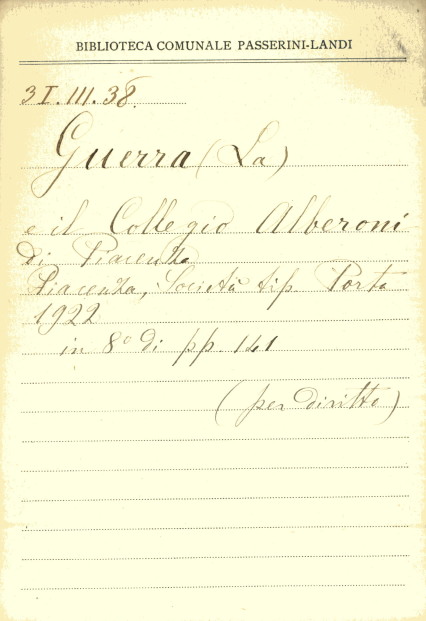 BIBLIOTECA COMUNALE PASSERINI-LANDI
3I.III.38.
Guerra (La)
e il Collegio Alberoni
di Piacenza
Piacenza, Società tip. Porta
1922
in 8° di pp. 141
(per diritto)